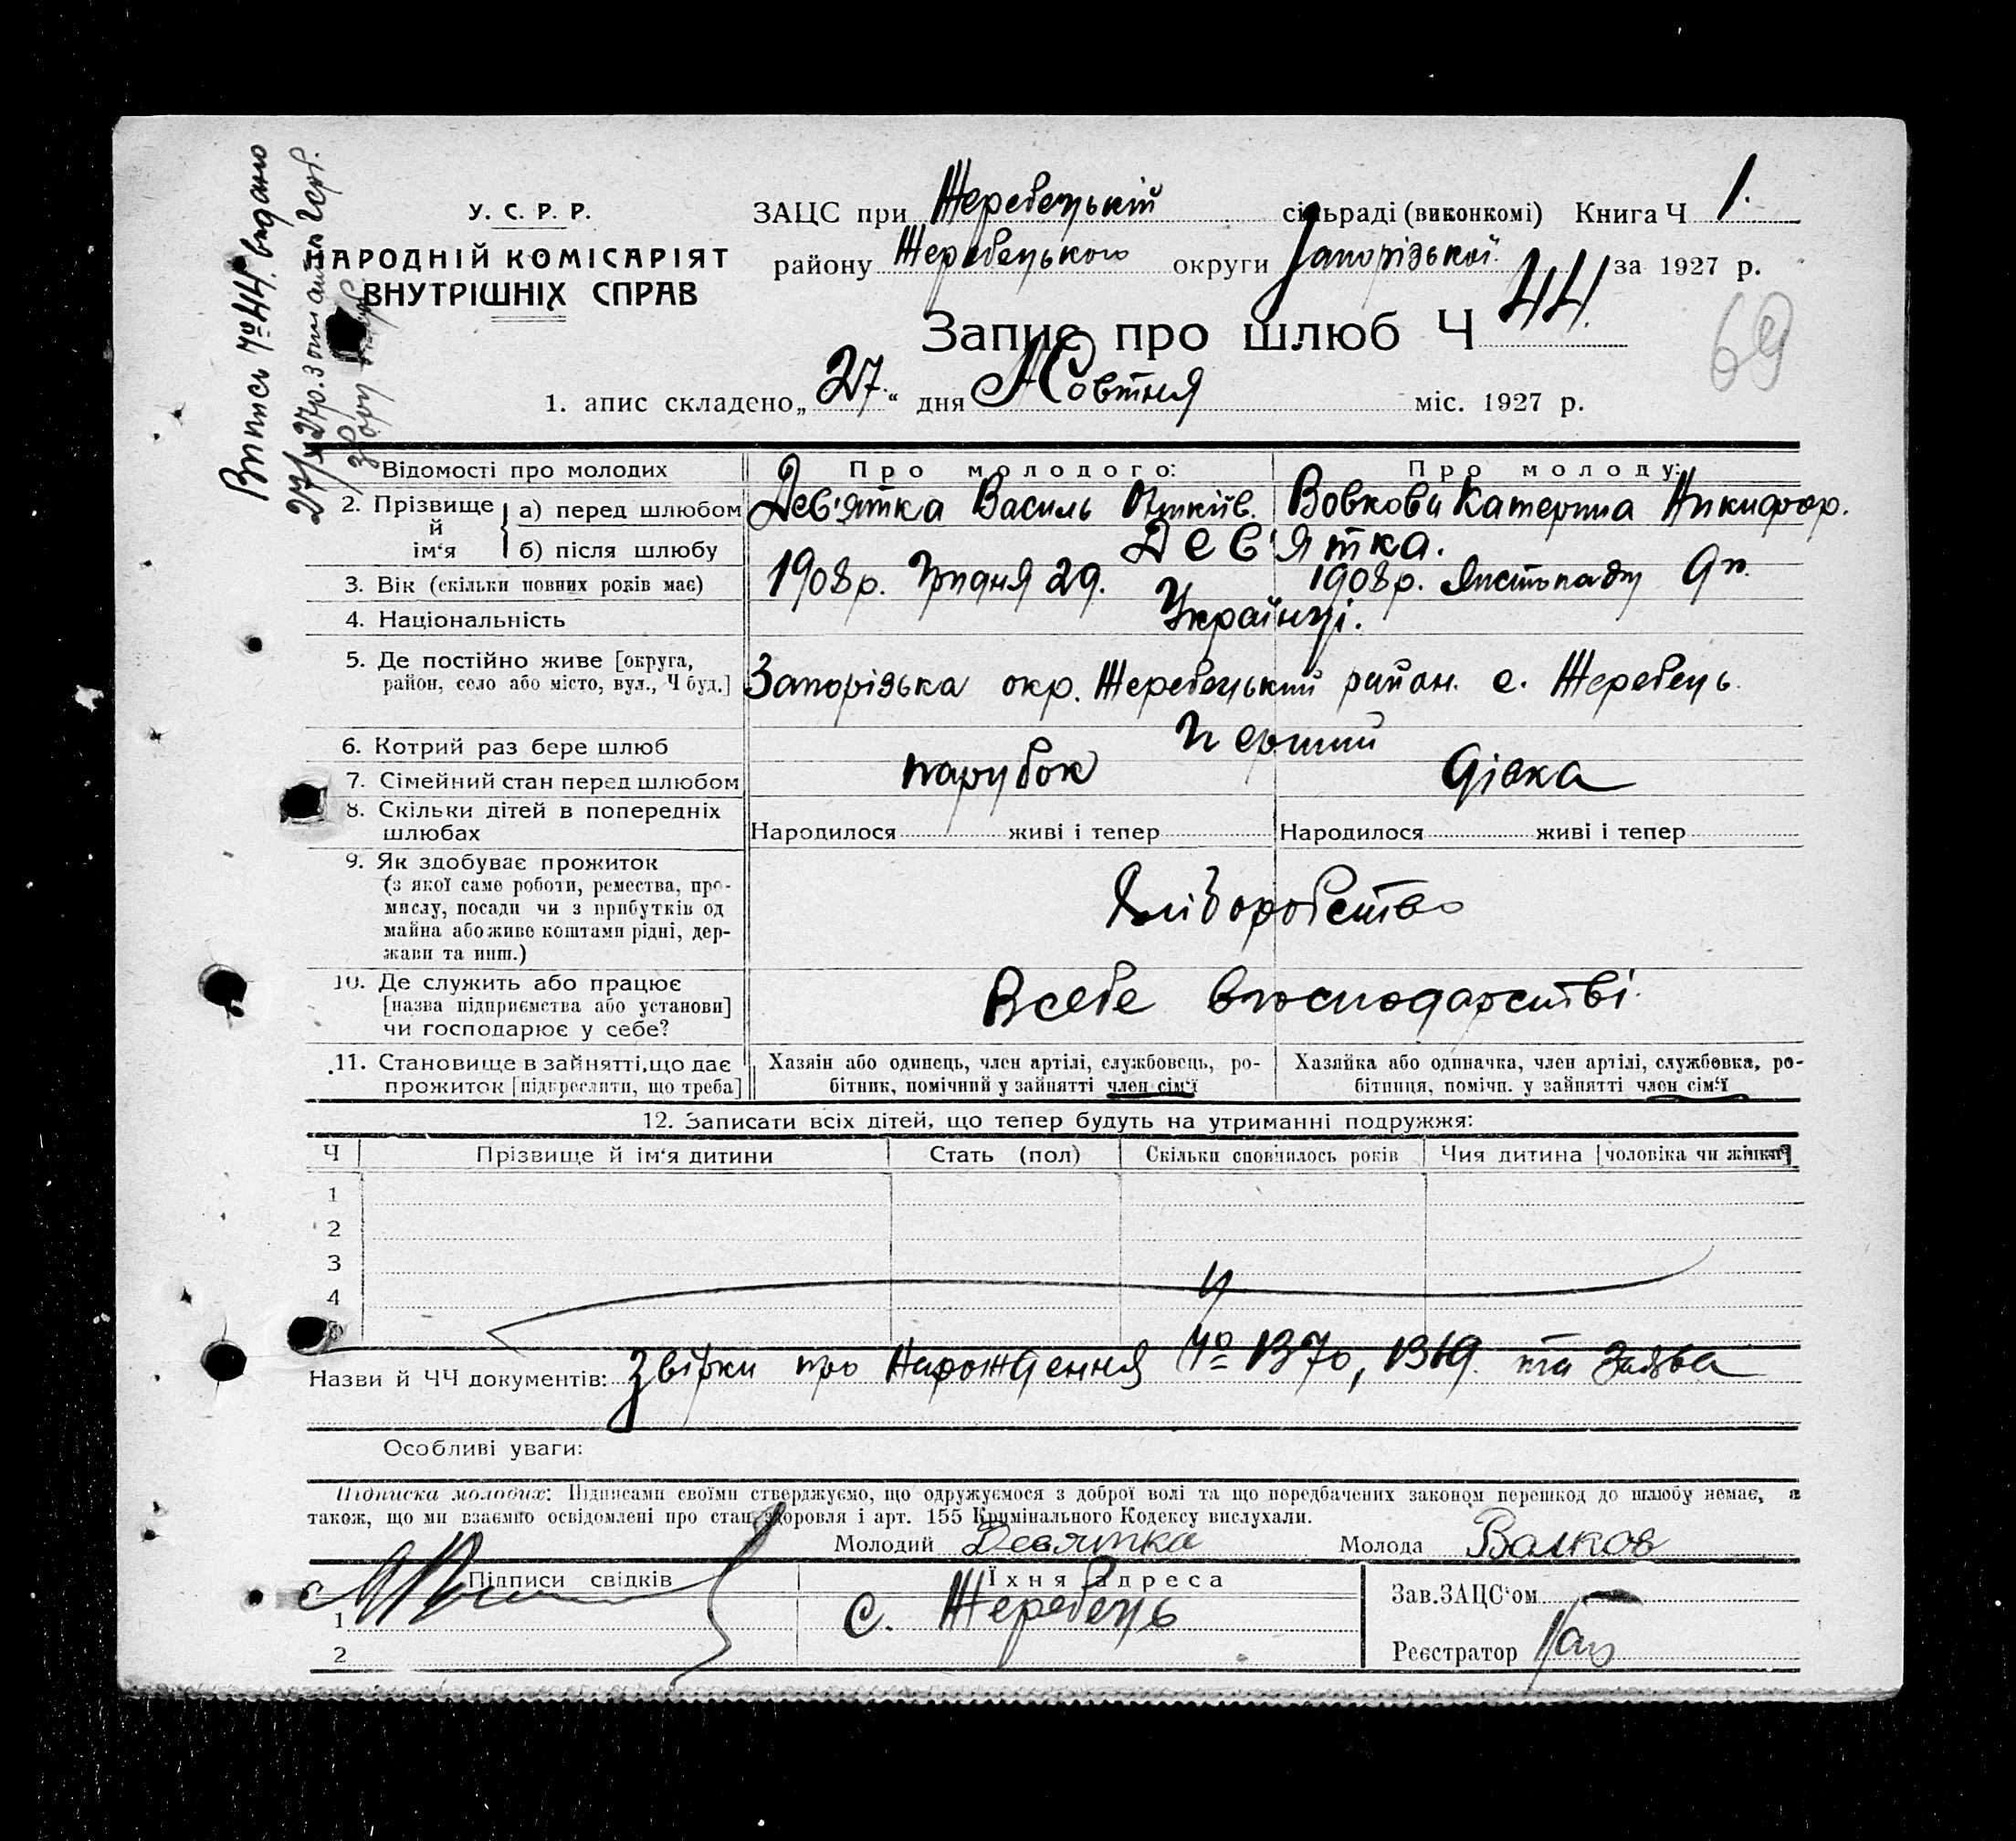 Випись № 44 видано
27/X 27р. з оплатою герб.
збору
У. С. Р. Р.
НАРОДНІЙ КОМІСАРІЯТ
ВНУТРІШНІХ СПРАВ
ЗАЦС при Жеребецькій сільраді (виконкомі) Книга Ч 1.
району Жеребецького округи Запорізької за 1927 р.
Запис про шлюб Ч 44.
69
1. апис складено „27.“ дня Жовтня міс. 1927 р.
Відомості про молодих Про молодого: Про молоду:
2. Прізвище й ім‘я а) перед шлюбом Дев'ятка Василь Вовкови Катерина Никифор.
б) після шлюбу Дев'ятка.
3. Вік (скільки повних років має) 1908р. Грудня 29. 1908р. Листопаду 9
4. Національність Українці.
5. Де постійно живе [округа,
район, село або місто, вул., Ч буд.] Запорізька окр. Жеребецький район. с. Жеребець.
6. Котрий раз бере шлюб Перший
7. Сімейний стан перед шлюбом парубок дівка
8. Скільки дітей в попередніх
шлюбах Народилося живі і тепер Народилося живі і тепер
9. Як здобуває прожиток
(з якої саме роботи, ремества, про-
мислу, посади чи з прибутків од
майна або живе коштами рідні, дер-
жави та инш.) Хліборобство
10. Де служить або працює
[назва підприємства або установи]
чи господарює у себе? В себе в господарстві.
11. Становище в зайнятті, що дає
прожиток [підкреслити, що треба]
Хазяїн або одинець, член артілі, службовець, ро-
бітник, помічний у зайнятті член сім‘ї
Хазяйка або одиначка, член артілі, службовка, ро-
бітниця, помічн. у зайнятті член сім‘ї
12. Записати всіх дітей, що тепер будуть на утриманні подружжя:
Ч Прізвище й ім‘я дитини Стать (пол) Скільки сповнилось років Чия дитина [чоловіка чи жінки]
1
2
3
4
5
Назви й ЧЧ документів: Звірки про Народження № 1370, 1369. та Заява
Особливі уваги:
Підписка молодих: Підписами своїми стверджуємо, що одружуємося з доброї волі та що передбачених законом перешкод до шлюбу немає, а
також, що ми взаємно освідомлені про стан здоровля і арт. 155 Кримінального Кодексу вислухали.
Молодий Девятка Молода Валков
Підписи свідків Їхня адреса
1 с. Жеребець
2
Зав. ЗАЦС‘ом
Реєстратор